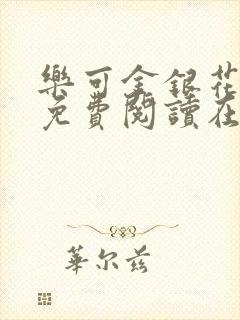 樂可金銀花
免費閱讀在
華尔兹